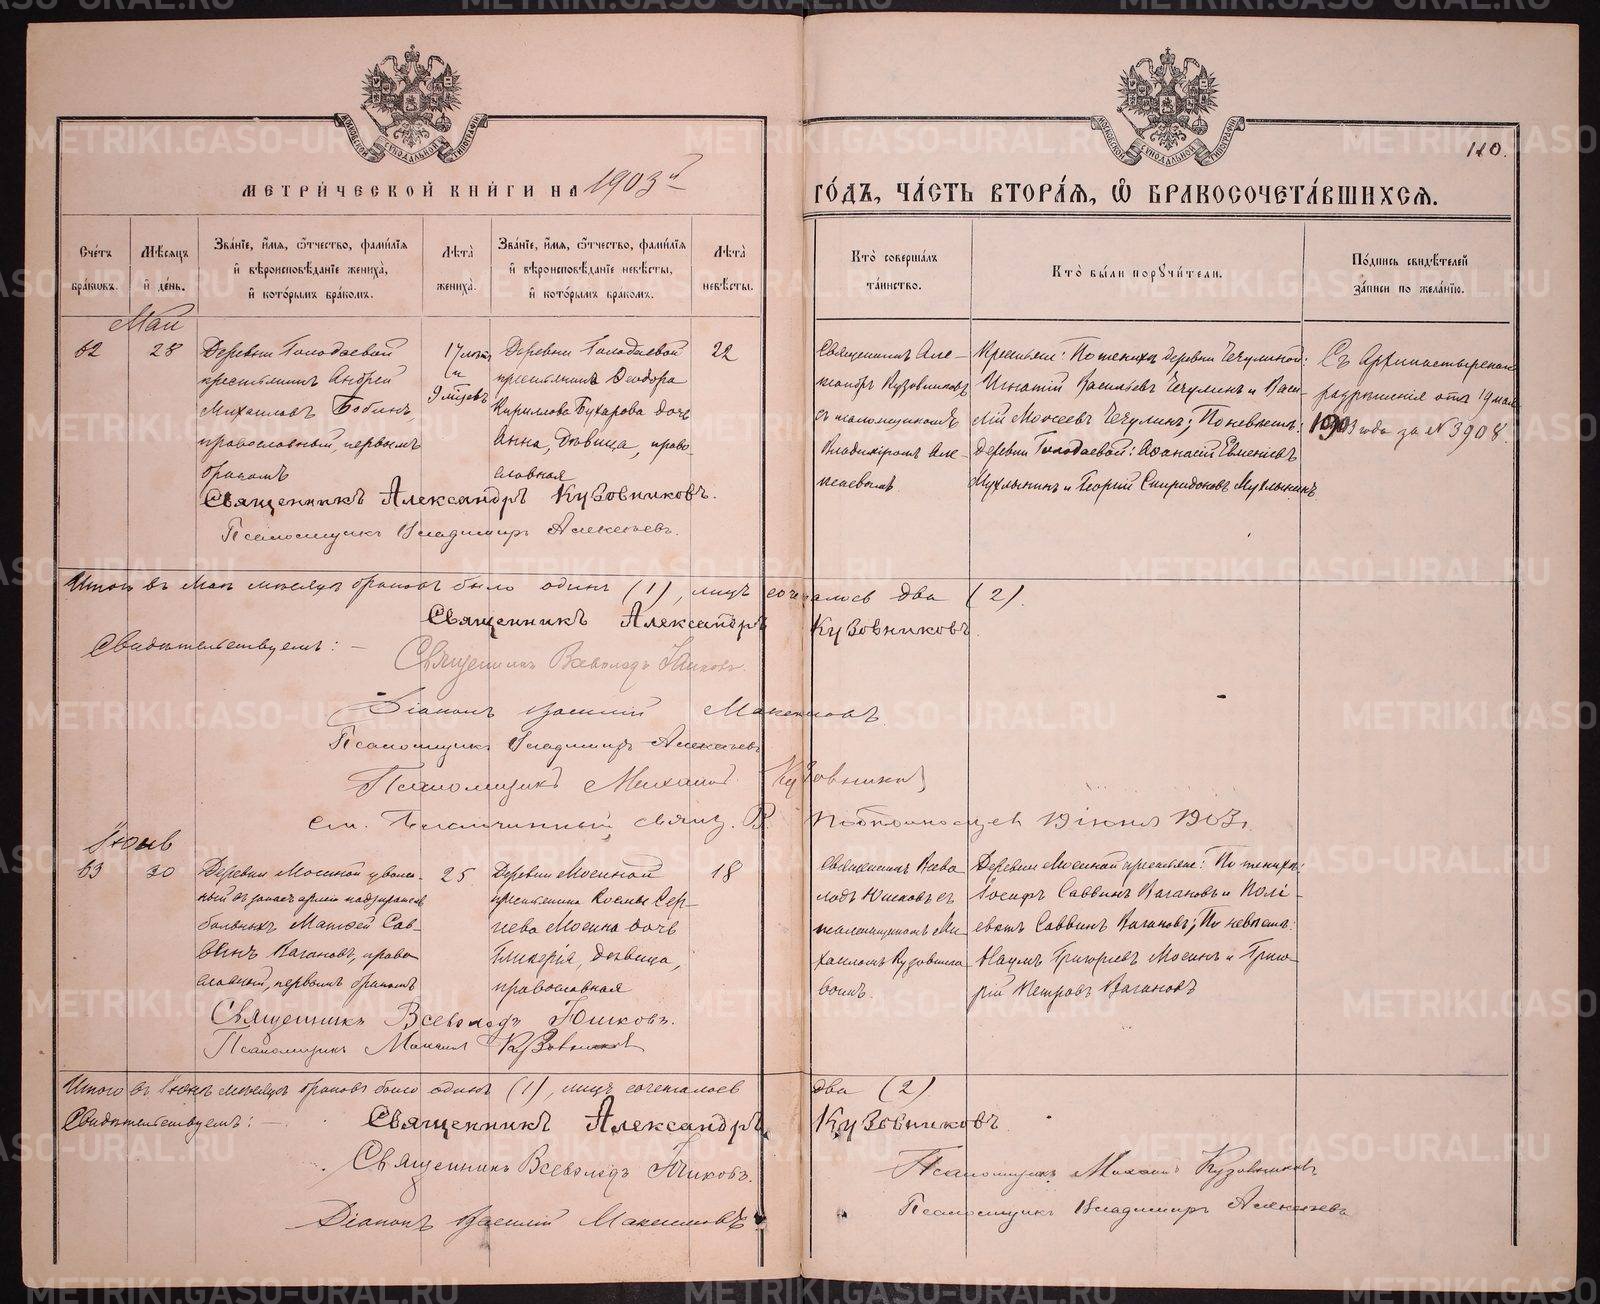 МЕТРИ́ЧЕСКОЙ КНИ́ГИ НА 1903й
ГО́ДЪ, ЧА́СТЬ ВТОРА́Я, Ѡ҆ БРАКОСОЧЕТА́ВШИХСЯ.
110.
Сче́тъ бра́кѡвъ.
Мѣ́сяцъ и҆ де́нь.
Зва́нїе, и҆́мя, ѻ҆́тчество, фами́лїя и҆ вѣроисповѣ́данїе жениха̀, и҆ кото́рымъ бра́комъ.
Лѣ́та жениха̀.
Зва́нїе, и҆́мя, ѻ҆́тчество, фами́лїя и҆ вѣроисповѣ́данїе невѣ́сты, и҆ кото́рымъ бра́комъ.
Лѣ́та невѣ́сты.
Кто̀ соверша́лъ та́инство.
Кто̀ бы́ли порꙋчи́тели.
По́дпись свидѣ́телей за́писи по жела́нїю.
Май
62
28
Деревни Голодаевой
крестьянинъ Андрей
Михаиловъ Бобинъ,
православный, первымъ
бракомъ
17 лѣтъ
и
9 мѣсевъ
Деревни Голодаевой
крестьянина Ѳеодора
Кириллова Бухарова дочь
Анна, дѣвица, право-
славная
22
Священникъ Але-
ксандръ Кузовниковъ
съ псаломщикомъ
Владиміромъ Але-
ксѣевымъ
Крестьяне: По женихѣ деревни Чечулиной:
Игнатій Васильевъ Чечулинъ и Васи-
лій Моисеевъ Чечулинъ; По невѣстѣ:
деревни Голодаевой: Аѳанасій Евменіевъ
Мухлынинъ и Георгій Спиридоновъ Мухлынинъ
Съ Архипастырскаго
разрѣшенія отъ 19 мая
1903 года за № 3908.
Священникъ Александръ Кузовниковъ.
Псаломщикъ Владимиръ Алексѣевъ.
Итого въ Маѣ мѣсяцѣ браковъ было одинъ (1), лицъ сочеталось два (2).
Священникъ Александръ Кузовниковъ.
Свидѣтельствуемъ: –
Священникъ Всеволодъ Юшковъ.
Діаконъ Василій Максимовъ.
Псаломщикъ Владимиръ Алексѣевъ
Псаломщикъ Михаилъ Кузовниковъ
См. Благочинный свящ. В. 19 іюня 1903 г.
Іюнь
63
30
Деревни Мосиной уволен-
ный въ запасъ арміи надзиратель
больныхъ Матѳей Сав-
винъ Вагановъ, право-
славный, первымъ бракомъ
25
Деревни Мосиной
крестьянина Космы Сер-
гѣева Мосина дочь
Гликерія, дѣвица,
православная
18
Священникъ Всево-
лодъ Юшковъ съ
псаломщикомъ Ми-
хаиломъ Кузовнико-
вымъ.
Деревни Мосиной крестьяне: По женихѣ:
Іосифъ Саввинъ Вагановъ и Полі-
евктъ Саввинъ Вагановъ; По невѣстѣ:
Наумъ Григорьевъ Мосинъ и Григо-
рій Петровъ Вагановъ
Священникъ Всеволодъ Юшковъ.
Псаломщикъ Михаилъ Кузовниковъ
Итого въ Іюнѣ мѣсяцѣ браковъ было одинъ (1), лицъ сочеталось два (2)
Свидѣтельствуемъ: – Священникъ Александръ Кузовниковъ.
Священникъ Всеволодъ Юшковъ.
Діаконъ Василій Максимовъ
Псаломщикъ Михаилъ Кузовниковъ
Псаломщикъ Владимиръ Алексѣевъ
METRIKI.GASO-URAL.RU